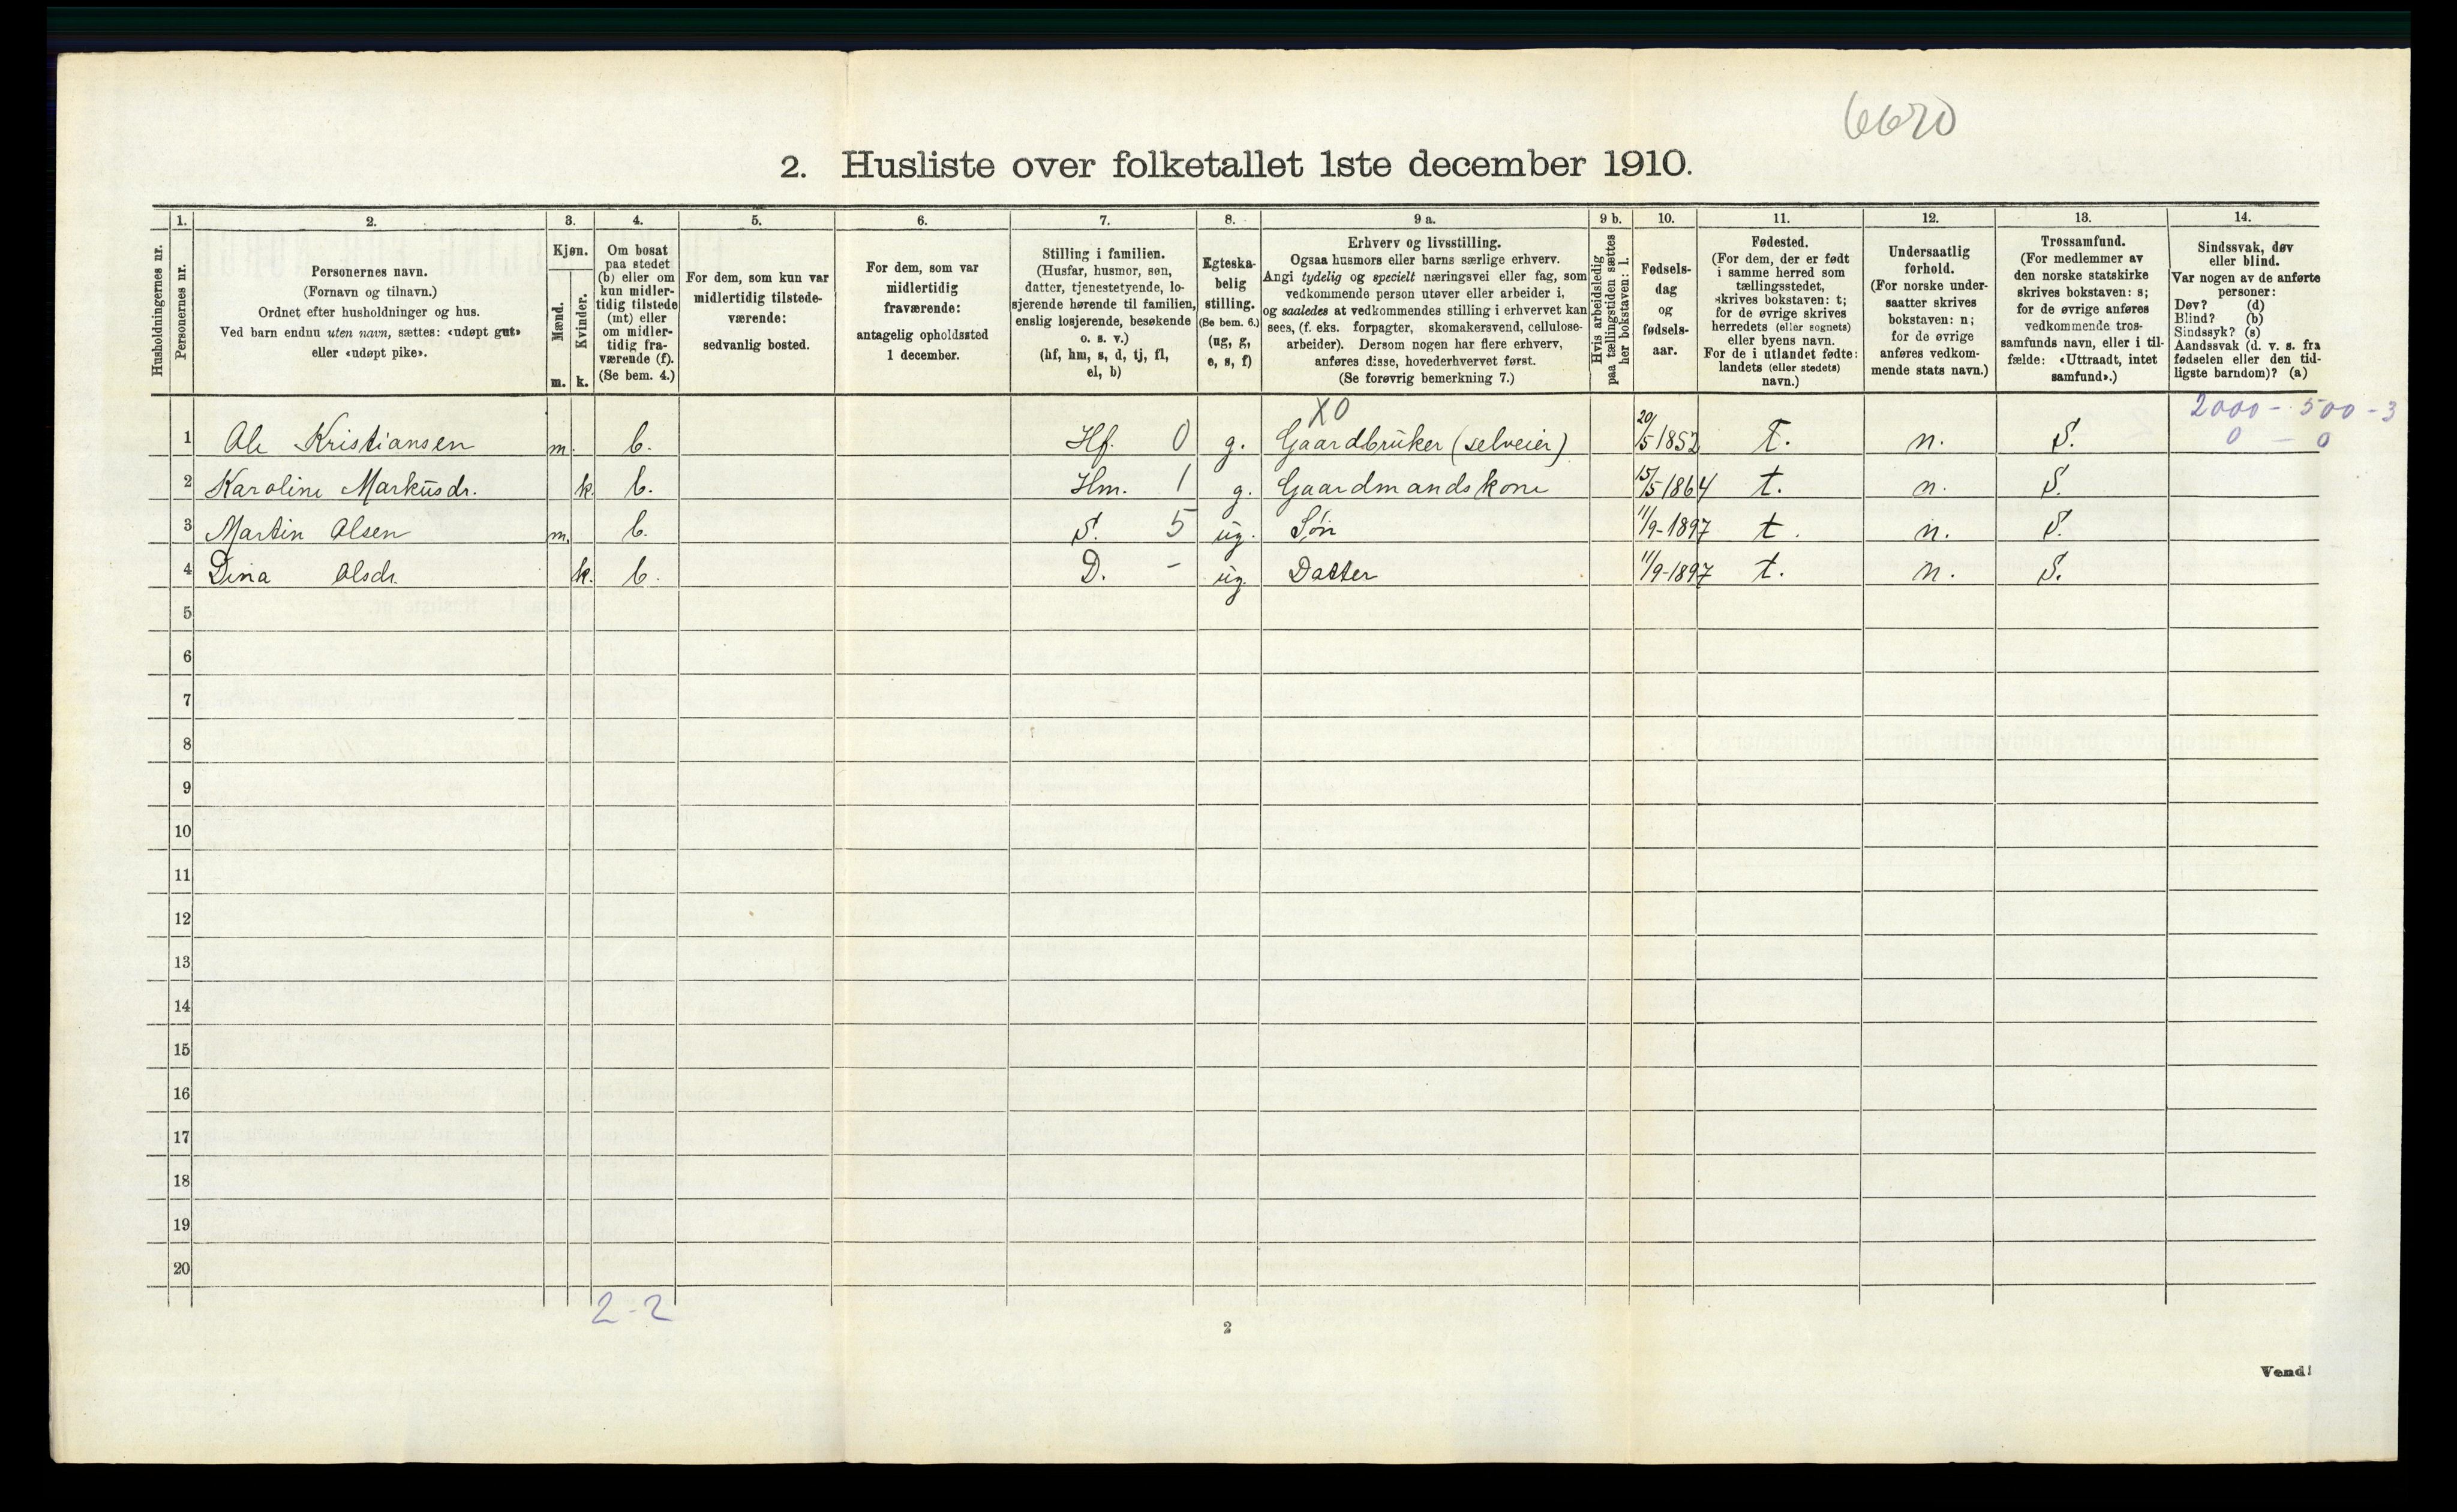 6620
2. Husliste over folketallet 1ste december 1910.
Husholdningernes nr.
1.
Personernes nr.
2.
Personernes navn.
(Fornavn og tilnavn.)
Ordnet efter husholdninger og hus.
Ved barn endnu uten navn, sættes: «udøpt gut»
eller «udøpt pike».
3.
Kjøn.
Mænd.
Kvinder.
m. k.
4.
Om bosat
paa stedet
(b) eller om
kun midler-
tidig tilstede
(mt) eller
om midler-
tidig fra-
værende (f).
(Se bem. 4.)
5.
For dem, som kun var
midlertidig tilstede-
værende:
sedvanlig bosted.
6.
For dem, som var
midlertidig
fraværende:
antagelig opholdssted
1 december.
7.
Stilling i familien.
(Husfar, husmor, søn,
datter, tjenestetyende, lo-
sjerende hørende til familien,
enslig losjerende, besøkende
o. s. v.)
(hf, hm, s, d, tj, fl,
el, b)
8.
Egteska-
belig
stilling.
(Se bem. 6.)
(ug, g,
e, s, f)
9 a.
Erhverv og livsstilling.
Ogsaa husmors eller barns særlige erhverv.
Angi tydelig og specielt næringsvei eller fag, som
vedkommende person utøver eller arbeider i,
og saaledes at vedkommendes stilling i erhvervet kan
sees, (f. eks. forpagter, skomakersvend, cellulose-
arbeider). Dersom nogen har flere erhverv,
anføres disse, hovederhvervet først.
(Se forøvrig bemerkning 7.)
9 b.
Hvis arbeidsledig
paa tællingstiden sættes
her bokstaven: l.
10.
Fødsels-
dag
og
fødsels-
aar.
11.
Fødested.
(For dem, der er født
i samme herred som
tællingsstedet,
skrives bokstaven: t;
for de øvrige skrives
herredets (eller sognets)
eller byens navn.
For de i utlandet fødte:
landets (eller stedets)
navn.)
12.
Undersaatlig
forhold.
(For norske under-
saatter skrives
bokstaven: n;
for de øvrige
anføres vedkom-
mende stats navn.)
13.
Trossamfund.
(For medlemmer av
den norske statskirke
skrives bokstaven: s;
for de øvrige anføres
vedkommende tros-
samfunds navn, eller i til-
fælde: «Uttraadt, intet
samfund».)
14.
Sindssvak, døv
eller blind.
Var nogen av de anførte
personer:
Døv? (d)
Blind? (b)
Sindssyk? (s)
Aandssvak (d. v. s. fra
fødselen eller den tid-
ligste barndom)? (a)
X0 2000 - 500 - 3
1 Ole Kristiansen m. b. Hf. 0 g. Gaardbruker (selveier) 20/5 1852 T. n. S. 0 - 0
2 Karoline Markusdr. k. b. Hm. 1 g. Gaardmandskone 15/5 1864 t. n. S.
3 Martin Olsen m. b. S. 5 ug. Søn 11/9-1897 t. n. S.
4 Dina Olsdr. k. b. D. - ug. Datter 11/9-1897 t. n. S.
5
6
7
8
9
10
11
12
13
14
15
16
17
18
19
20
2-2
2
Vend!